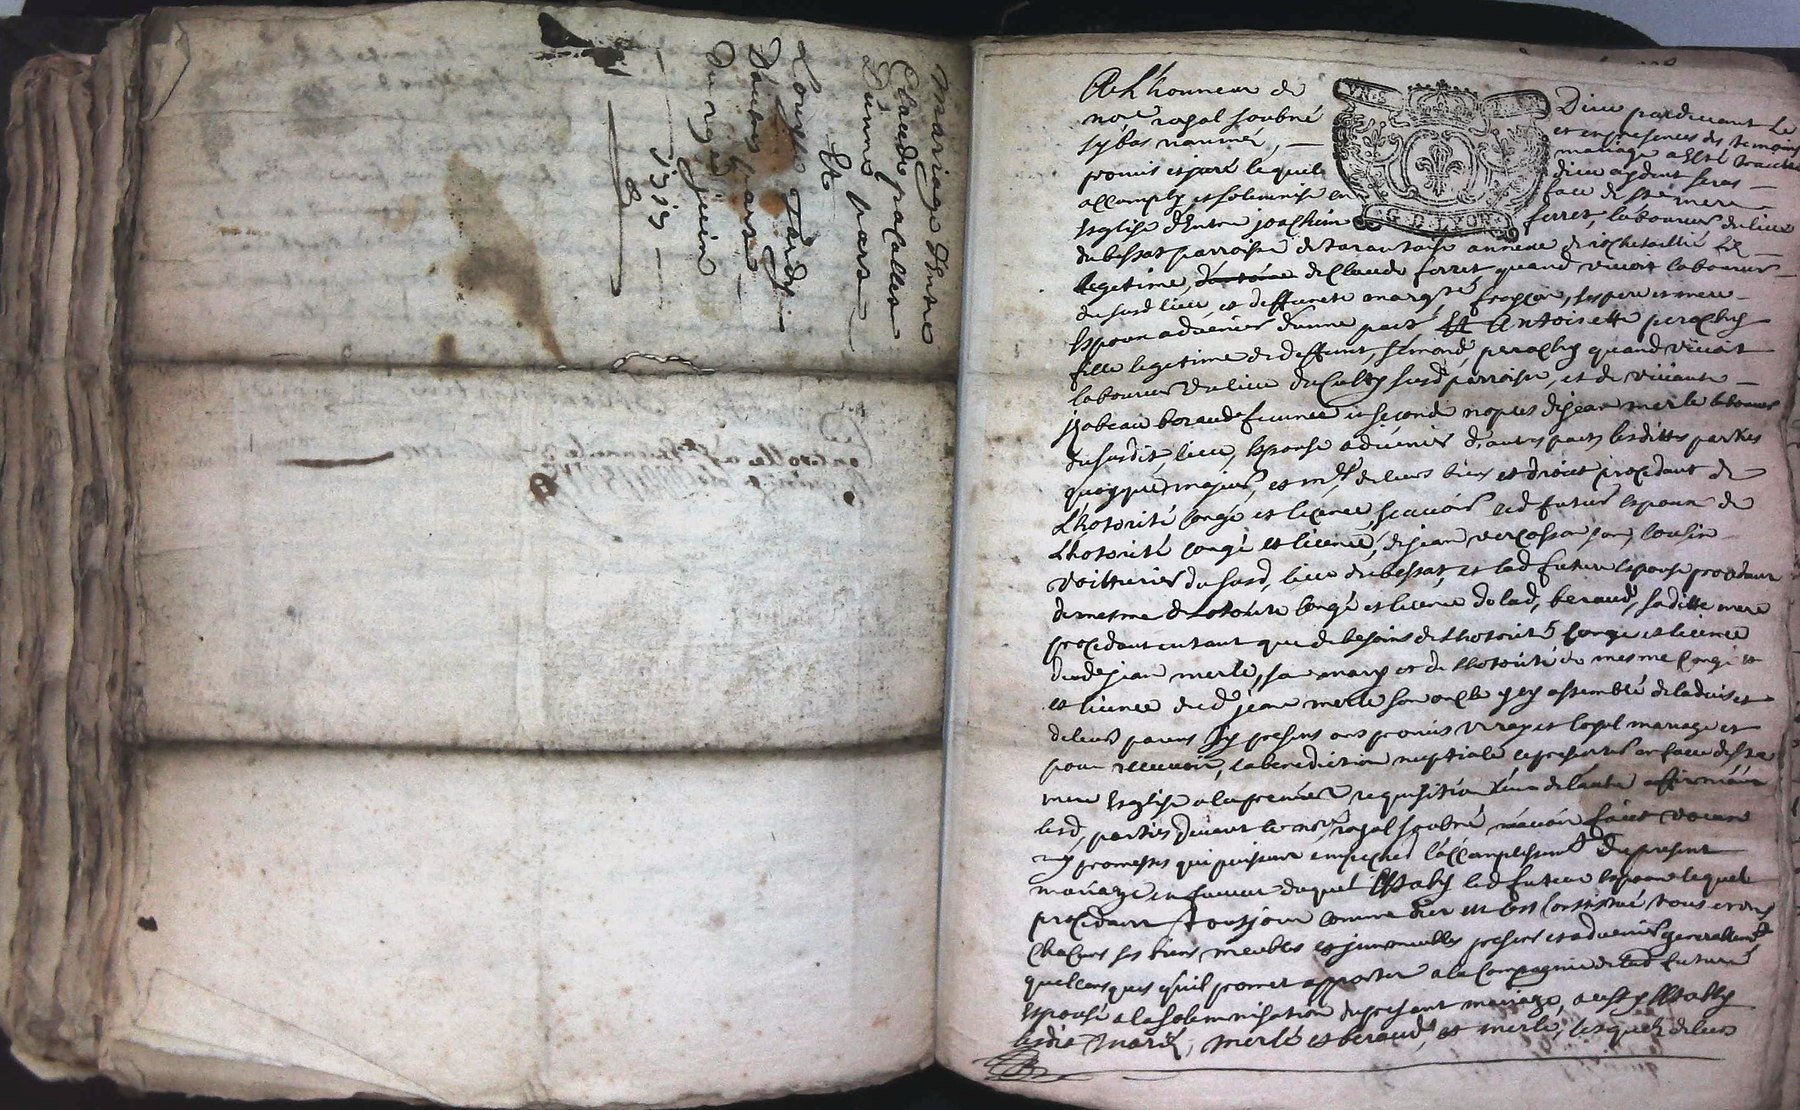 Mariage d'Entre
Claude pacalles
d'une part
Et
Louyse Tardy
d'autre part
Du 29e juin
1717
A L'honneur de Dieu pardevant Le
nore royal soubné et en presences des temoins
sy bas nommés, mariage a esté traicté
promis et juré lequel dieu aydent seras
accomply et solemnise en face de ste mere
Esglise d'Entre joachim ferret, laboureur du lieu
du bessat parroisse de tarantaise annexe de rochetaillié
legitime, de Claude ferret quand vivoit laboureur
du susd lieu et deffuncte margte frapçon, ses pere et mere
Espoux advenir d'unne part Et Antoisette perachy
fille legitime de deffunt simond perrachy quand vivoit
laboureur du lieu de susd parroisse, et de vivante
jzabeau beraud femme en seconde nopces de jean merle laboureur
du susdit lieu, Espouse advenir d'autre part, lesdittes parties
quoyque majeurs, et mes de leurs biens et droict procedant de
L'hotorité congé et licence scavoir led futur Espoux de
L'hotorité congé et licence, de jean vercasson son cousin
voitturier du susd, lieu du bessat, et lad future Espouse procedant
de mesme de Lotorité congé et licence de lad, beraud, sa ditte mere
procedant en tant que de besoins de L'hotorité congé et licence
dud jean merle, sa mary et de L'hotorité de mesme congé et
et licence dud jean merle son oncle y assemblé de ladvis et
de leurs parens Sy presens ons promis vray et loyal mariage et
pour recevoir, la benediction nuptiale se presenter en face de ste
mere Esglise a la premier requisition l'un de l'autre affirmant
lesd, parties devant le nore royal soubné n'avoir faict vœux
ny promesses qui puissent empecher l'accomplissemt Du present
mariage en faveur duquel Estably led futur Espoux lequel
procedant toutjour comme dict est Cest constitué tous et ung
chacuns ses biens meubles et jmmeubles presens et advenirs generallement
quelconques qu'il promet apporter a la compagnie de lad future
Espouse a la solemnisation du present mariage, aussy Estably
merle et beraud, et merle, lesquels de leur